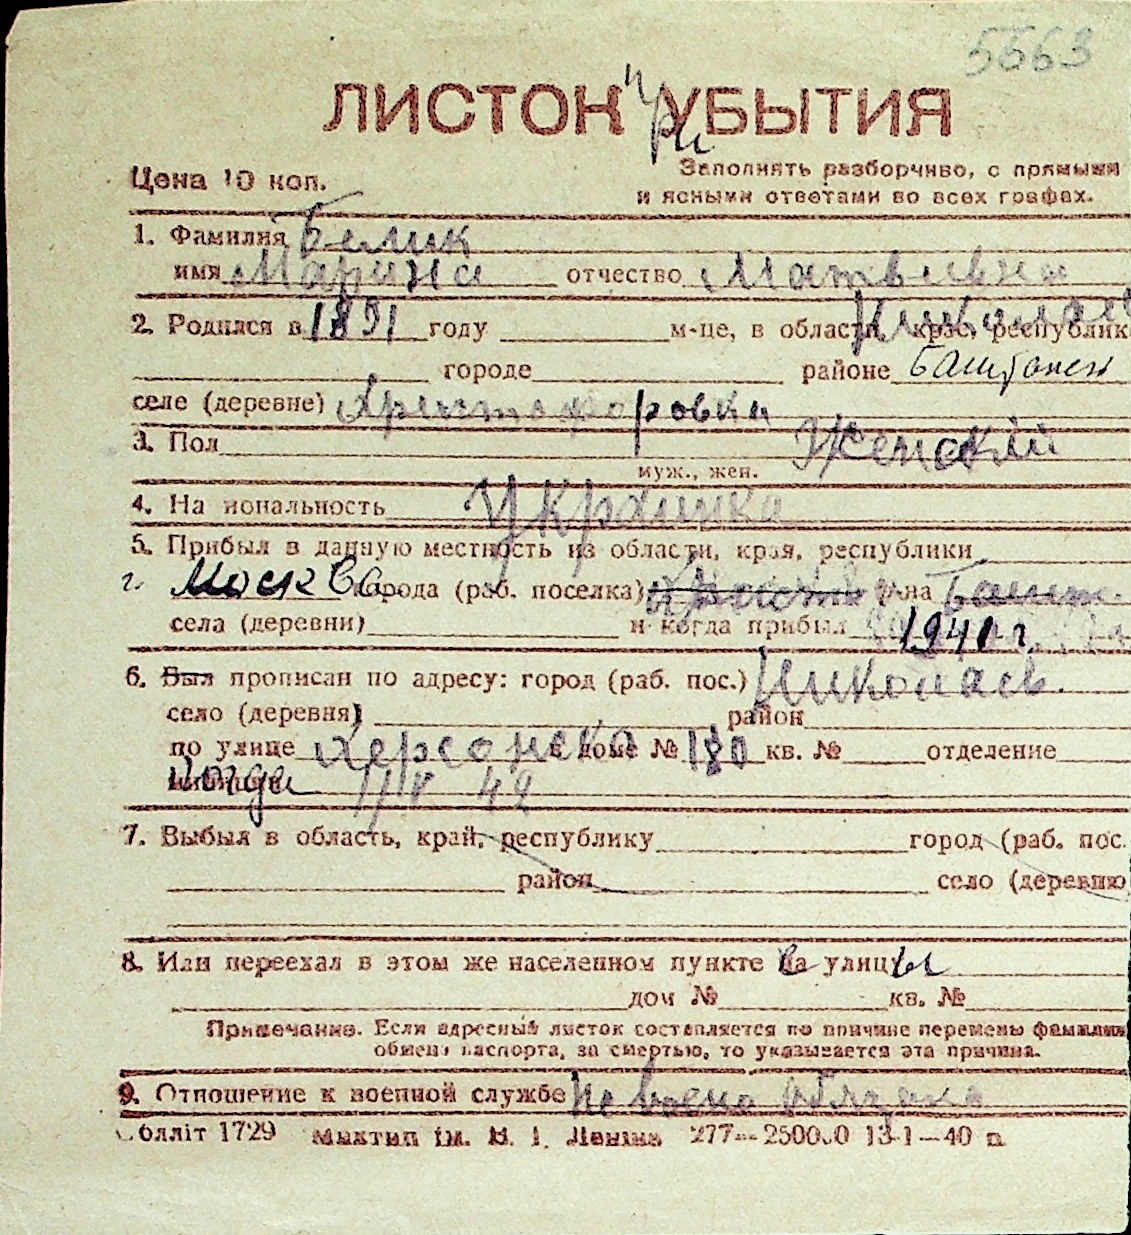 5663
ЛИСТОК при УБЫТИЯ
Цена 10 коп.
Заполнять разборчиво, с прямыми
и ясными ответами во всех графах.
1. Фамилия Белик
имя Марина отчество Матвеевна
2. Родился в 1891 году м-це, в области, крае, республике Николаев
городе районе Баштанск
селе (деревне) Христофоровка
3. Пол Женский
муж., жен.
4. На иональность Украинка
5. Прибыл в данную местность из области, края, республики
г. Москва города (раб. поселка) р-на Башт.
села (деревни) и когда прибыл 1941 г.
6. Был прописан по адресу: город (раб. пос.) Николаев.
село (деревня) район
по улице Херсонска в доме № 180 кв. № отделение
когда 42
7. Выбыл в область, край, республику город (раб. пос.
район село (деревню
8. Или переехал в этом же населенном пункте в улицы
дом № кв. №
Примечание. Если адресный листок составляется по причине перемены фамилии
обмена паспорта, за смертью, то указывается эта причина.
9. Отношение к военной службе Не военнообязана
Обліт 1729 Миктип ім. В. І. Леніна 277—250000 13-1—40 р.